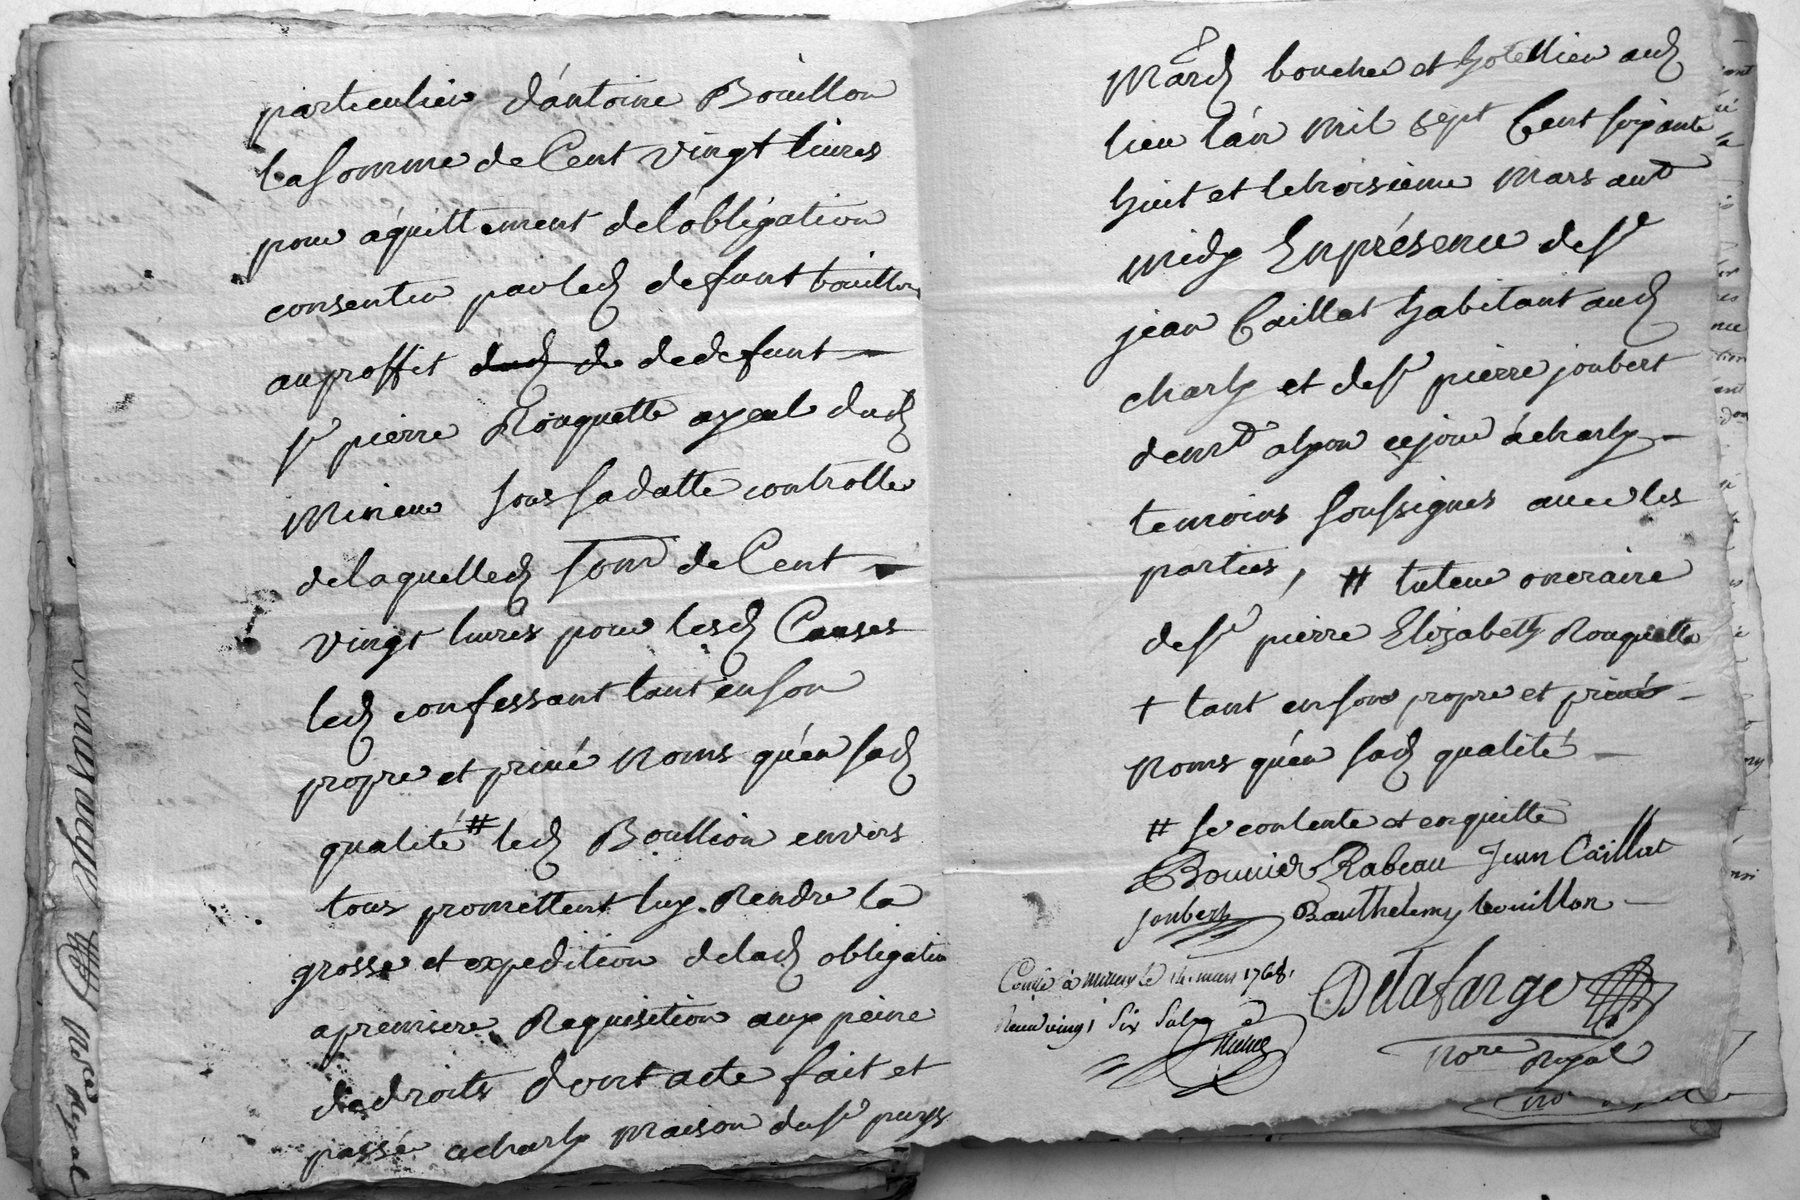 particulier d'antoine Bouillon
la somme de Cent vingt livres
pour aquittement de l'obligation
consentie par led defunt bouillon
au proffit dud de de defunt
sr pierre Rouquette ayeul dud
Mineur sous sa datte controlle
de laquelle d som de Cent
vingt livres pour lesd Causes
led confessant tant en son
propre et privé Noms qu'en sad
qualité # led Boullion envers
tous promettent luy Rendre la
grosse et expedition de lad obligation
a premiere Requisition aux peine
de droits dont acte fait et
passé a charly Maison du sr puys
March boucher et hotellier aud
lieu l'an Mil sept Cent soixante
huit et le troisieme Mars avt
midy En présence de sr
jean Caillat habitant aud
charly et de sr pierre joubert
demt ce jour á charly
temoins soussignes avec les
parties, # tuteur oneraire
de sr pierre Elizabeth Rouquette
+ tant en son propre et privé
Noms qu'en sad qualité
# se contente et en quitte
Bonnier Rabeau Jean Caillat
Joubert Barthelemy bouillon
Delafarge
Nore Royal
Conlé à le 14 mars 1768.
vingt Six Sols
Nre Royal